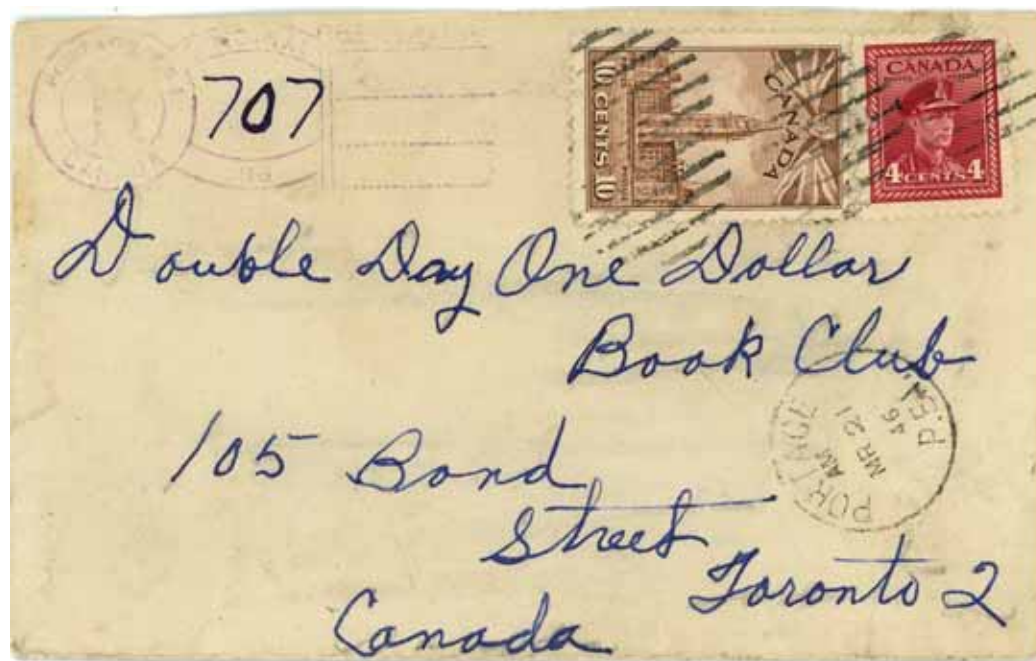 707
10 CENTS 10
CANADA
CANADA
4 CENTS 4
Double Day One Dollar
Book Club
105 Bond
Street
Toronto 2
Canada
AM
MR 21
46
P.E.I.